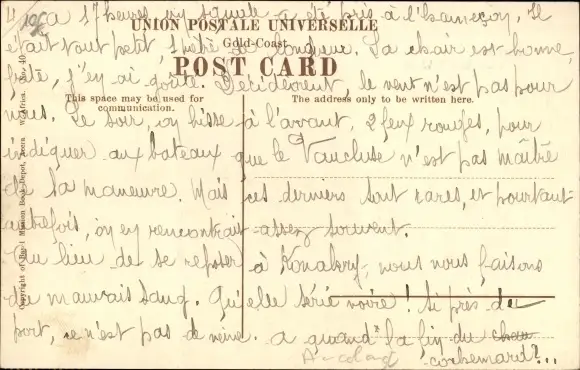 à 17 heures, un squale a été pris à l'hameçon. Il
UNION POSTALE UNIVERSELLE
était tout petit, 1 mètre de longueur. Sa chair est bonne,
Gold-Coast
POST CARD
j'y ai goûté. Décidément, le vent n'est pas pour
This space may be used for communication.
The address only to be written here.
nous. Le soir, on hisse à l'avant, 2 feux rouges, pour
indiquer aux bateaux que le Vaucluse n'est pas maître
de sa maneuvre. Mais ces derniers sont rares, et pourtant
autrefois, on en rencontrait assez souvent.
Au lieu de se reposer à Konakry, nous nous faisons
du mauvais sang. Quelle série noire! Si près du
port, ce n'est pas de veine. a quand la fin du